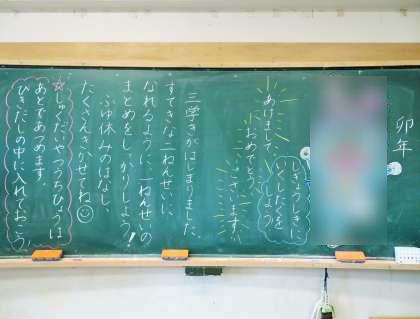 卯年
しぎょうしきに
いくしたくを
しよう
あけまして
おめでとう
ございます
三学きがはじまりました。
すてきな二ねんせいに
なれるように、一ねんせいの
まとめをしっかりしよう!
ふゆ休みのはなし、
たくさんきかせてね
☆しゅくだいやつうちひょうは
あとであつめます。
ひきだしの中に入れておこう。